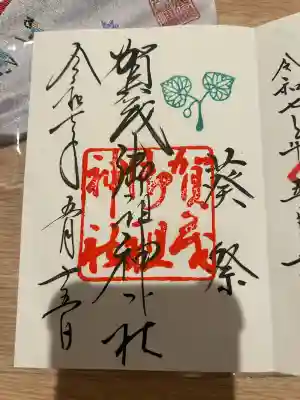 令和七年五
葵祭
賀茂御祖神社
賀茂
御祖
神社
令和七年 五月十五日